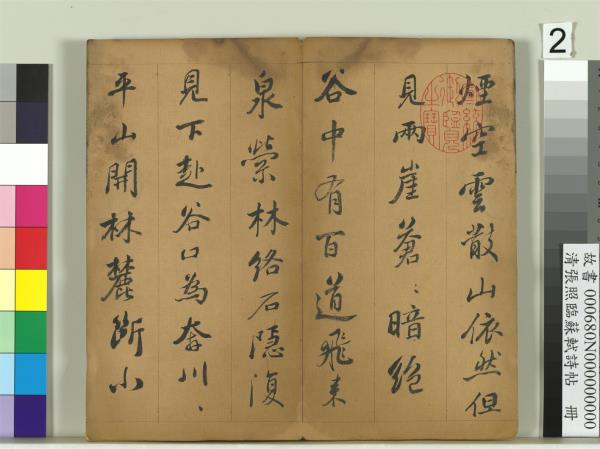 煙空雲散山依然但
見兩崖蒼〻暗絕
谷中有百道飛來
泉縈林絡石隱復
見下赴谷口為奔川〻
平山開林麓斷小
2
故書 000680N000000000
清張照臨蘇軾詩帖 冊